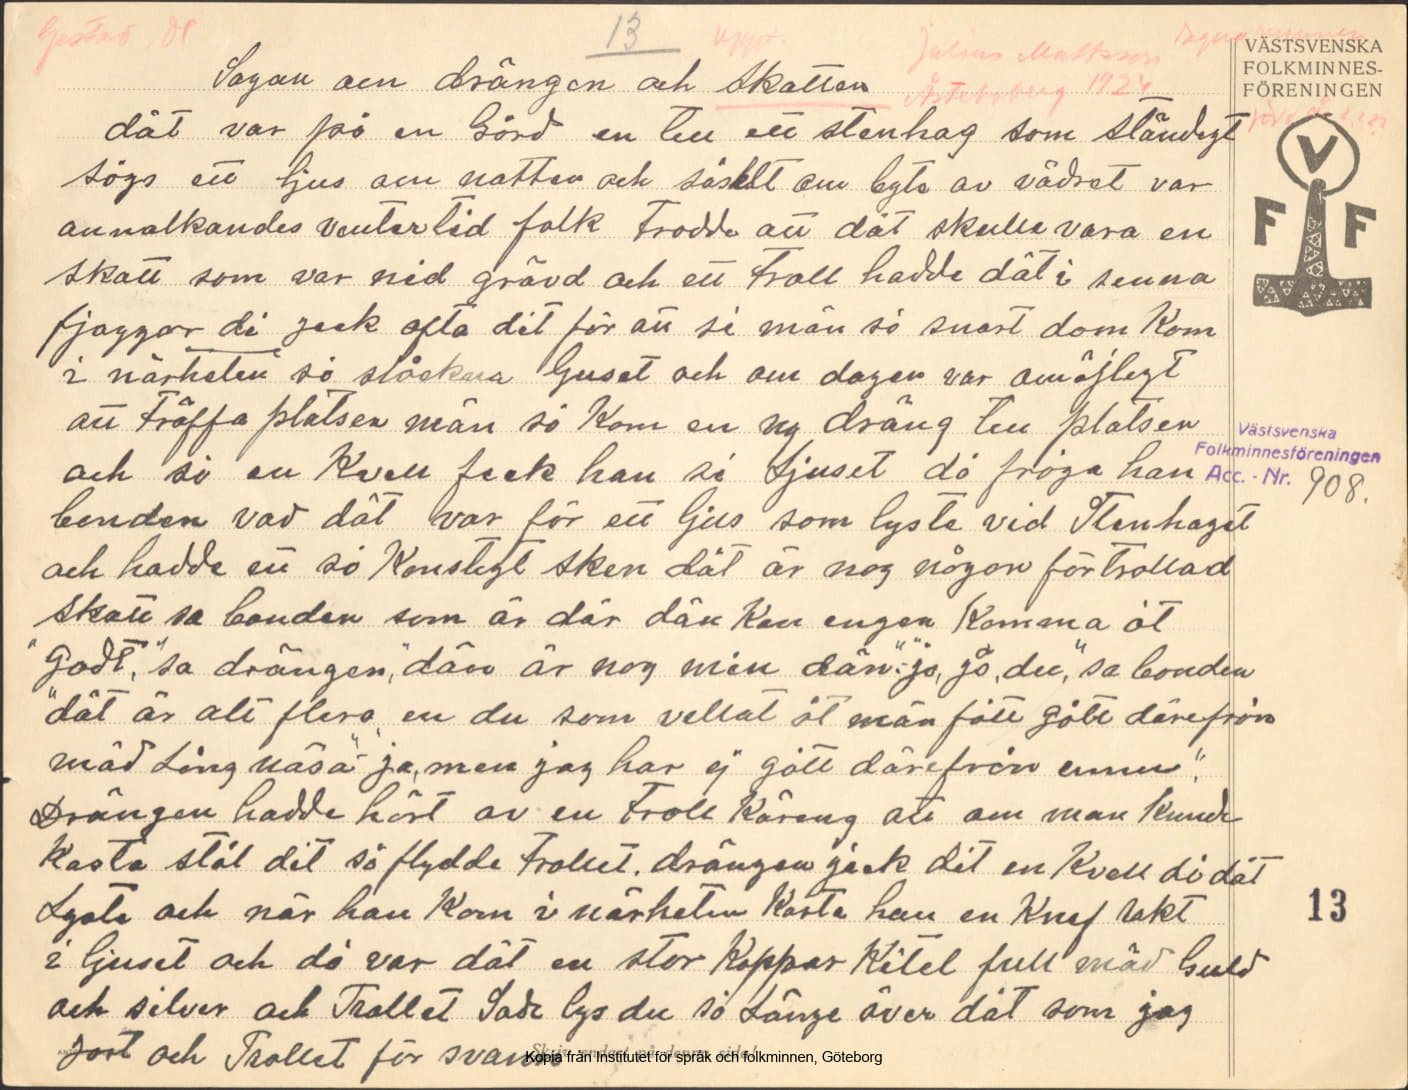 Gestad, Dl
13
uppt.
Julius Mattsson
Sagan om drängen och Skatten
1924
VÄSTSVENSKA
FOLKMINNES-
FÖRENINGEN
dät var på en Görd en teu ett stenhag som ständigt
sögs ett ljus om natten och särskilt om byte av vädret var
annalkandes venter tid folk trodde att dät skulle vara en
skatt som var nid grävd och ett Troll hadde dät i senna
fjaggor di geck ofta dit för att si män så snart dom kom
i närheten så slåckna ljuset och om dagen var omöjlegt
att träffa platsen män så kom en ny dräng teu platsen
och så en kvell feck han si ljuset då fröga han
bonden vad dät var för ett ljus som lyste vid Stenhaget
och hadde ett så konstigt sken dät är nog någon förtrollad
skatt sa bonden som är där dän kan engen komma åt
"Godt," sa drängen, "dän är nog min dän". "jo, jö, du," sa bonden
"dät är alt flera en du som vellat åt män fått gått därefrån
mäd Lång näsa" - "ja, men jag har ej gått därefrån ennu".
Drängen hadde hört av en Troll käreng att om man kunde
kasta stål dit så flydde Trollet. drängen geck dit en kvell då dät
Lyste och när han kom i närheten kaste han en knif rakt
i ljuset och då var dät en stor koppar kitel full mäd Guld
och silver och Trollet Sade lys du så Länge över dät som jag
jort och Trollet för svann
V
F F
Västsvenska
Folkminnesföreningen
Acc. - Nr. 908.
13
Skriv endast på denna sida!
Kopia från Institutet för språk och folkminnen, Göteborg